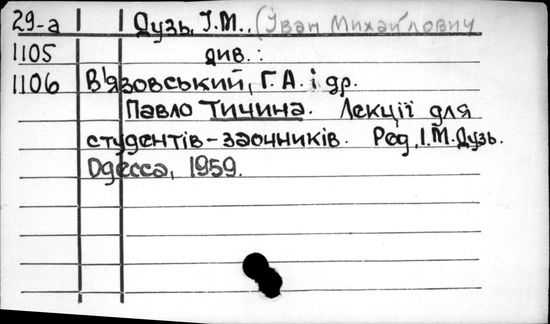 29-а Дузь, І.М., (Іван Михайлович
1105 див.:
1106 В'язовський, Г.А. і др.
Павло Тичина. Лекції для
студентів-заочників. Ред. І.М.Дузь.
Одесса, 1959.